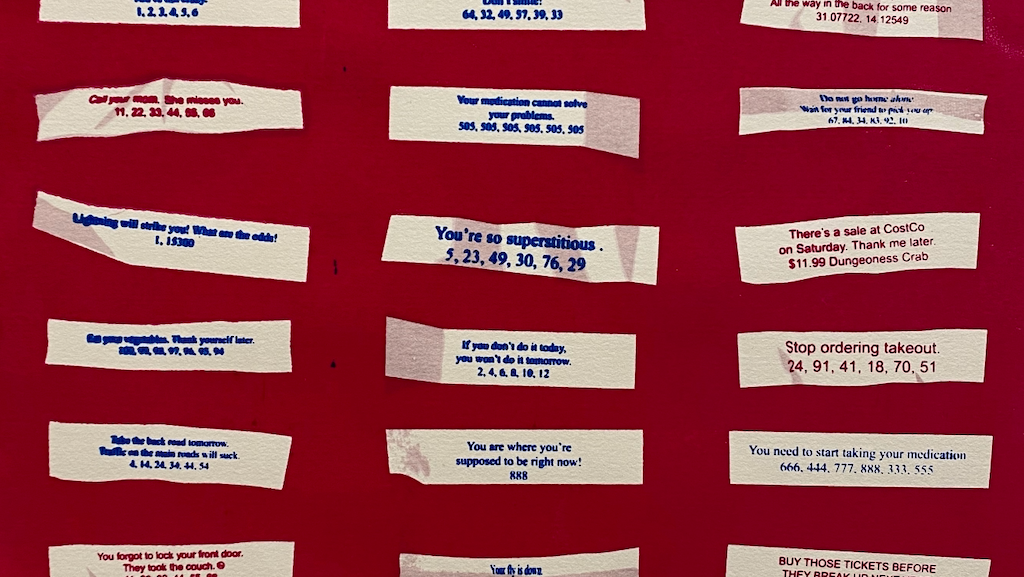 1, 2, 3, 4, 5, 6
Don't smile!
64, 32, 49, 57, 39, 33
All the way in the back for some reason
31.07722, 14.12549
Call your mom. She misses you.
11, 22, 33, 44, 55, 66
Your medication cannot solve
your problems.
505, 505, 505, 505, 505, 505
Do not go home alone
Wait for your friend to pick you up
67, 84, 34, 83, 92, 10
Lightning will strike you! What are the odds!
1, 15300
You're so superstitious .
5, 23, 49, 30, 76, 29
There's a sale at CostCo
on Saturday. Thank me later.
$11.99 Dungeoness Crab
Eat your vegetables. Thank yourself later.
99, 98, 97, 96, 95, 94
If you don't do it today,
you won't do it tomorrow.
2, 4, 6, 8, 10, 12
Stop ordering takeout.
24, 91, 41, 18, 70, 51
Take the back road tomorrow.
Traffic on the main roads will suck.
4, 14, 24, 34, 44, 54
You are where you're
supposed to be right now!
888
You need to start taking your medication
666, 444, 777, 888, 333, 555
You forgot to lock your front door.
They took the couch. ☹
Your fly is down.
BUY THOSE TICKETS BEFORE
THEY BREAK UP